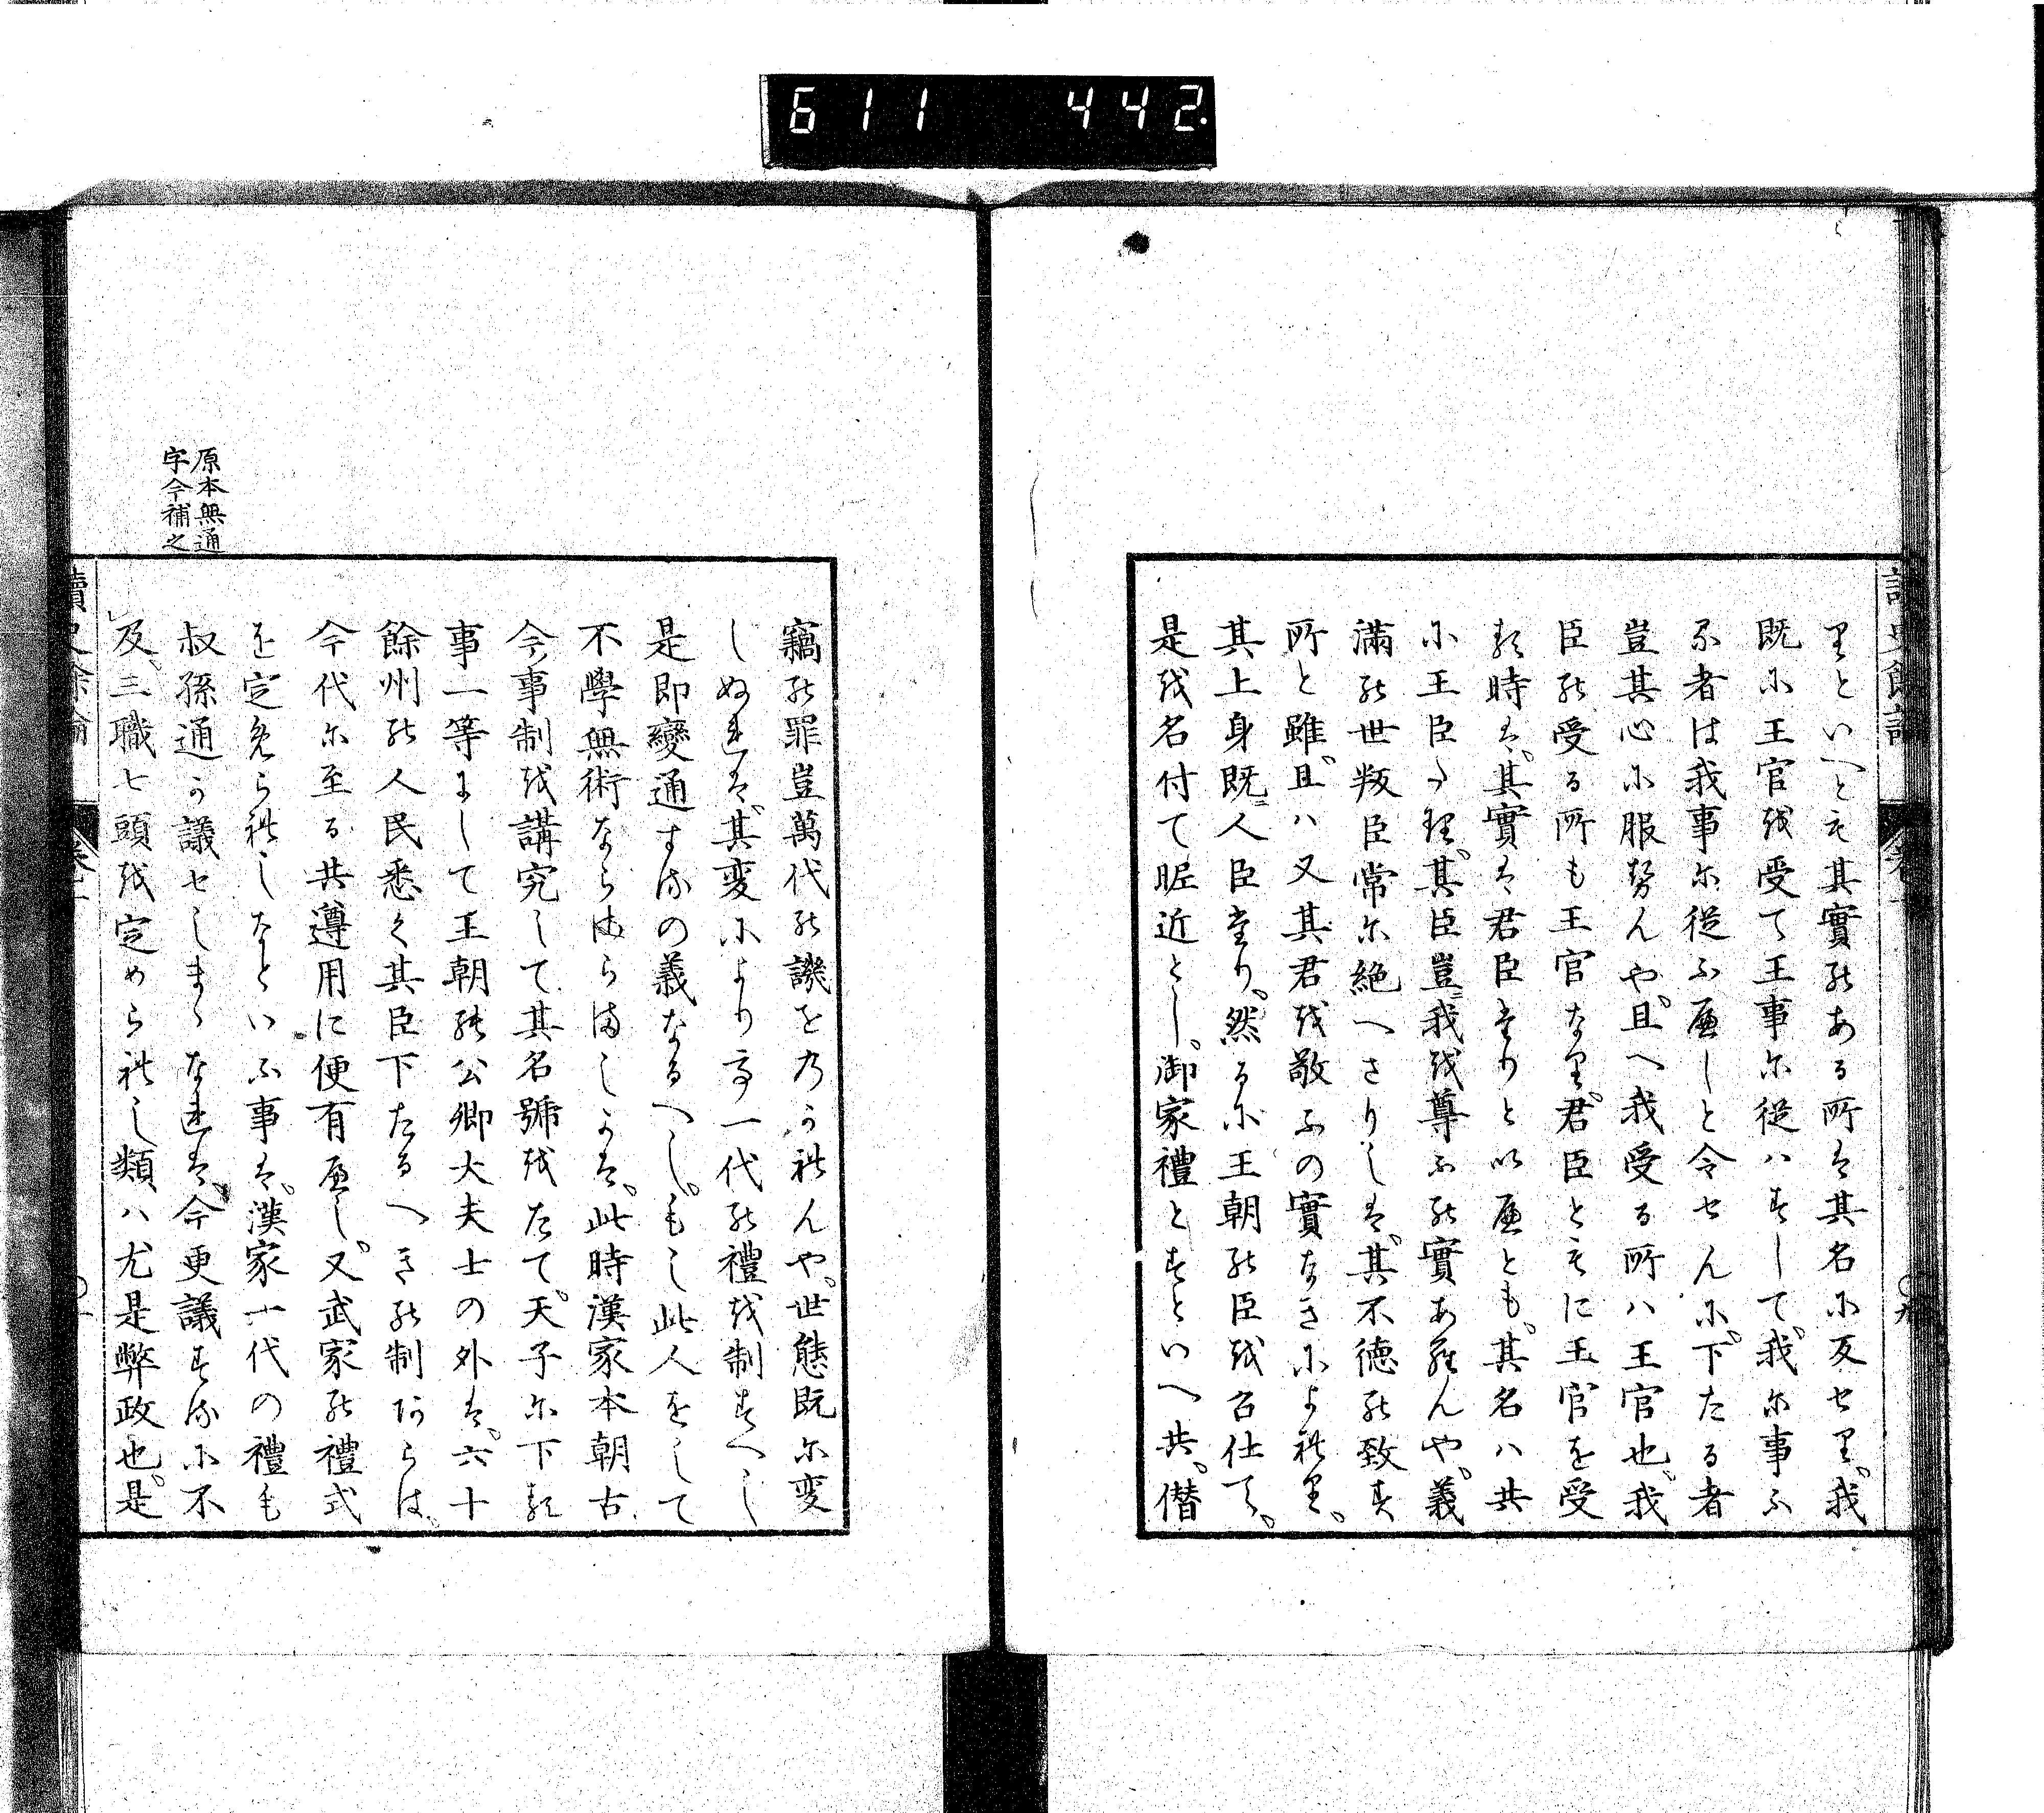 611 442
讀史餘論
りといへとも其實のある所は其名に反せり。我
既に王官を受て王事に従はすして。我に事ふ
る者は我事に従ふへしと令せんに。下たる者
豈其心に服せんや。且つ我受る所ハ王官也。我
臣の受る所も王官なり。君臣ともに王官を受
る時は。其實は君臣たりと以へとも。其名ハ共
に王臣たり。其臣豈我を尊ふの實あらんや。義
滿の世叛臣常に絶へさりしは。其不徳の致す
所と雖。且ハ又其君を敬ふの實なきによれり。
其上身既ニ人臣たり。然るに王朝の臣を召仕て。
是を名付て昵近とし。御家禮とすといへ共。僣
竊の罪豈萬代の譏をのかれんや。世態既に変
しぬれは。其変により而一代の禮を制すへし
是即變通するの義なるへし。もし此人をして
不學無術ならさらましかは。此時漢家本朝古
今事制を講究して其名號をたて。天子に下る
事一等にして王朝の公卿大夫士の外は。六十
餘州の人民悉く其臣下たるへきの制あらは。
今代に至る共遵用に便有へし。又武家の禮式
を定められしなといふ事は。漢家一代の禮も
叔孫通か議せしまゝなれは。今更議するに不
及。三職七頭を定められし類ハ尤是弊政也。是
原本無通
字今補之
讀史餘論